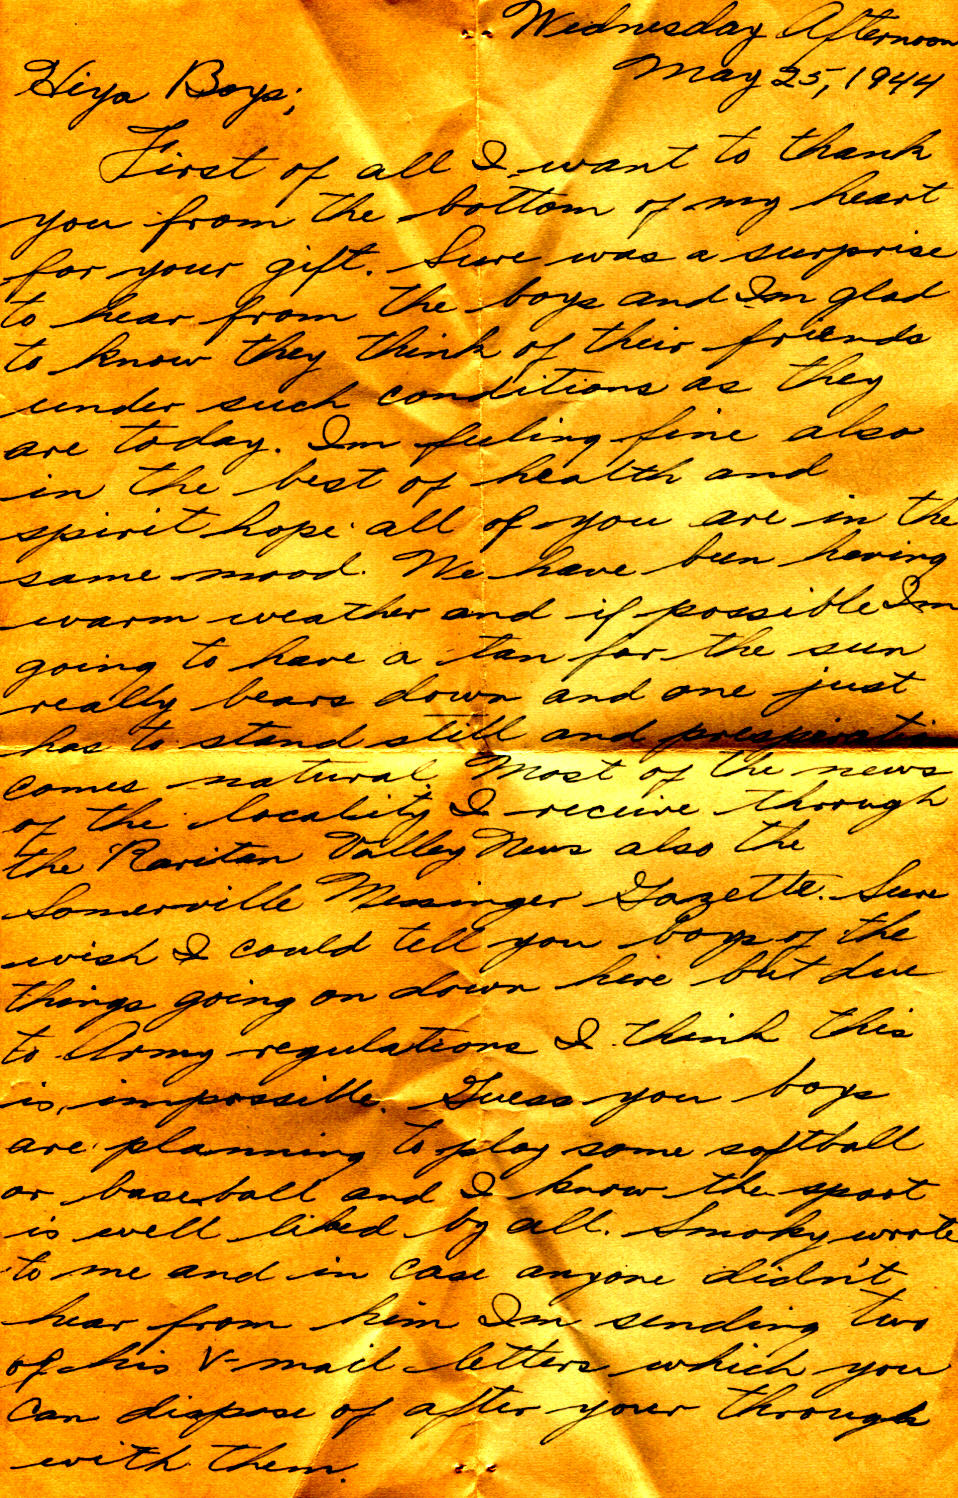 Wednesday Afternoon
May 25, 1944
Hiya Boys;
First of all I want to thank
you from the bottom of my heart
for your gift. Sure was a surprise
to hear from the boys and Im glad
to know they think of their friends
under such conditions as they
are today. Im feeling fine also
in the best of health and
spirit hope all of you are in the
same mood. We have been having
warm weather and if possible Im
going to have a tan for the sun
really bears down and one just
has to stand still and
comes natural. Most of the news
of the locality I receive through
the Raritan Valley News also the
Somerville Messinger Gazette. Sure
wish I could tell you boys of the
things going on down here but due
to Army regulations I think this
is impossible. Guess you boys
are planning to play some softball
or baseball and I know the sport
is well liked by all. Smoky wrote
to me and in case anyone didn't
hear from him Im sending two
of his V-mail letters which you
can dispose of after your through
with them.